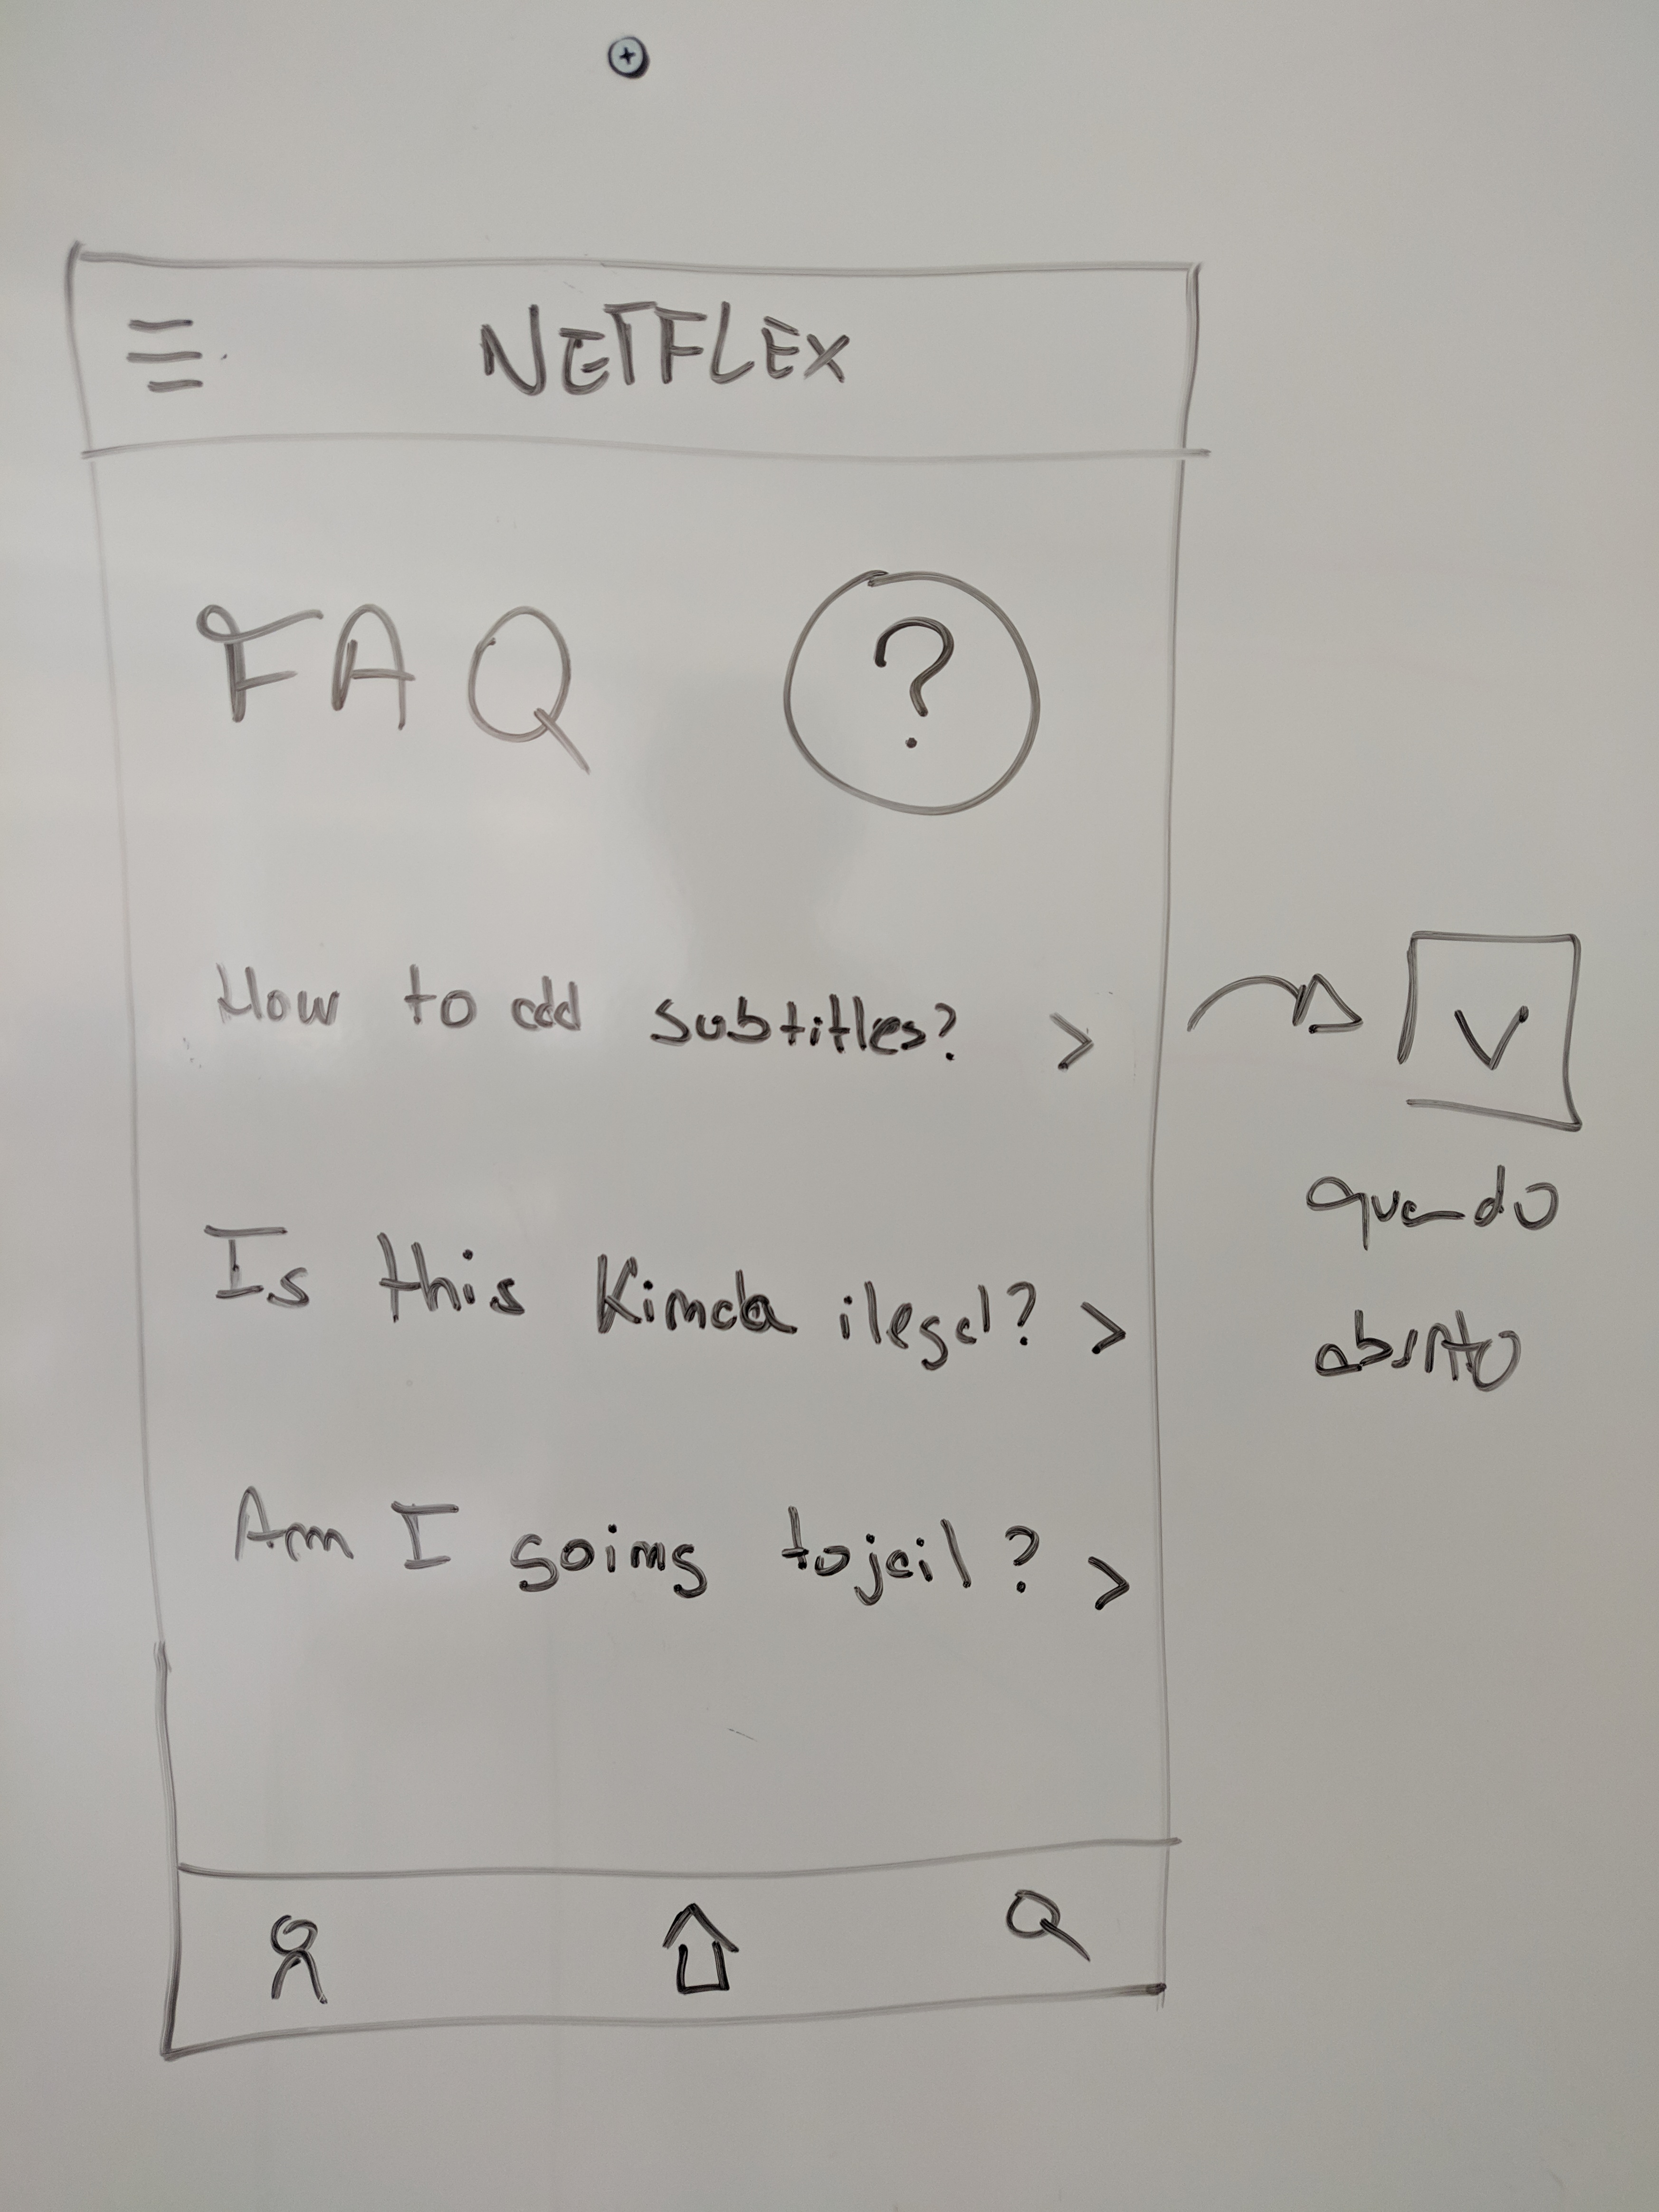 NETFLEX
FAQ ?
How to add subtitles? >
V
quando
absrto
Is this Kimda ilegal? >
Am I going to jail? >